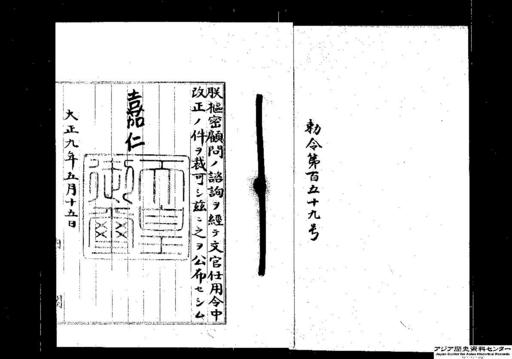 勅令第百五十九号
朕枢密顧問ノ諮詢ヲ経テ文官任用令中
改正ノ件ヲ裁可シ茲ニ之ヲ公布セシム
嘉仁
天皇御璽
大正九年五月十五日
アジア歴史資料センター
Japan Center for Asian Historical Records